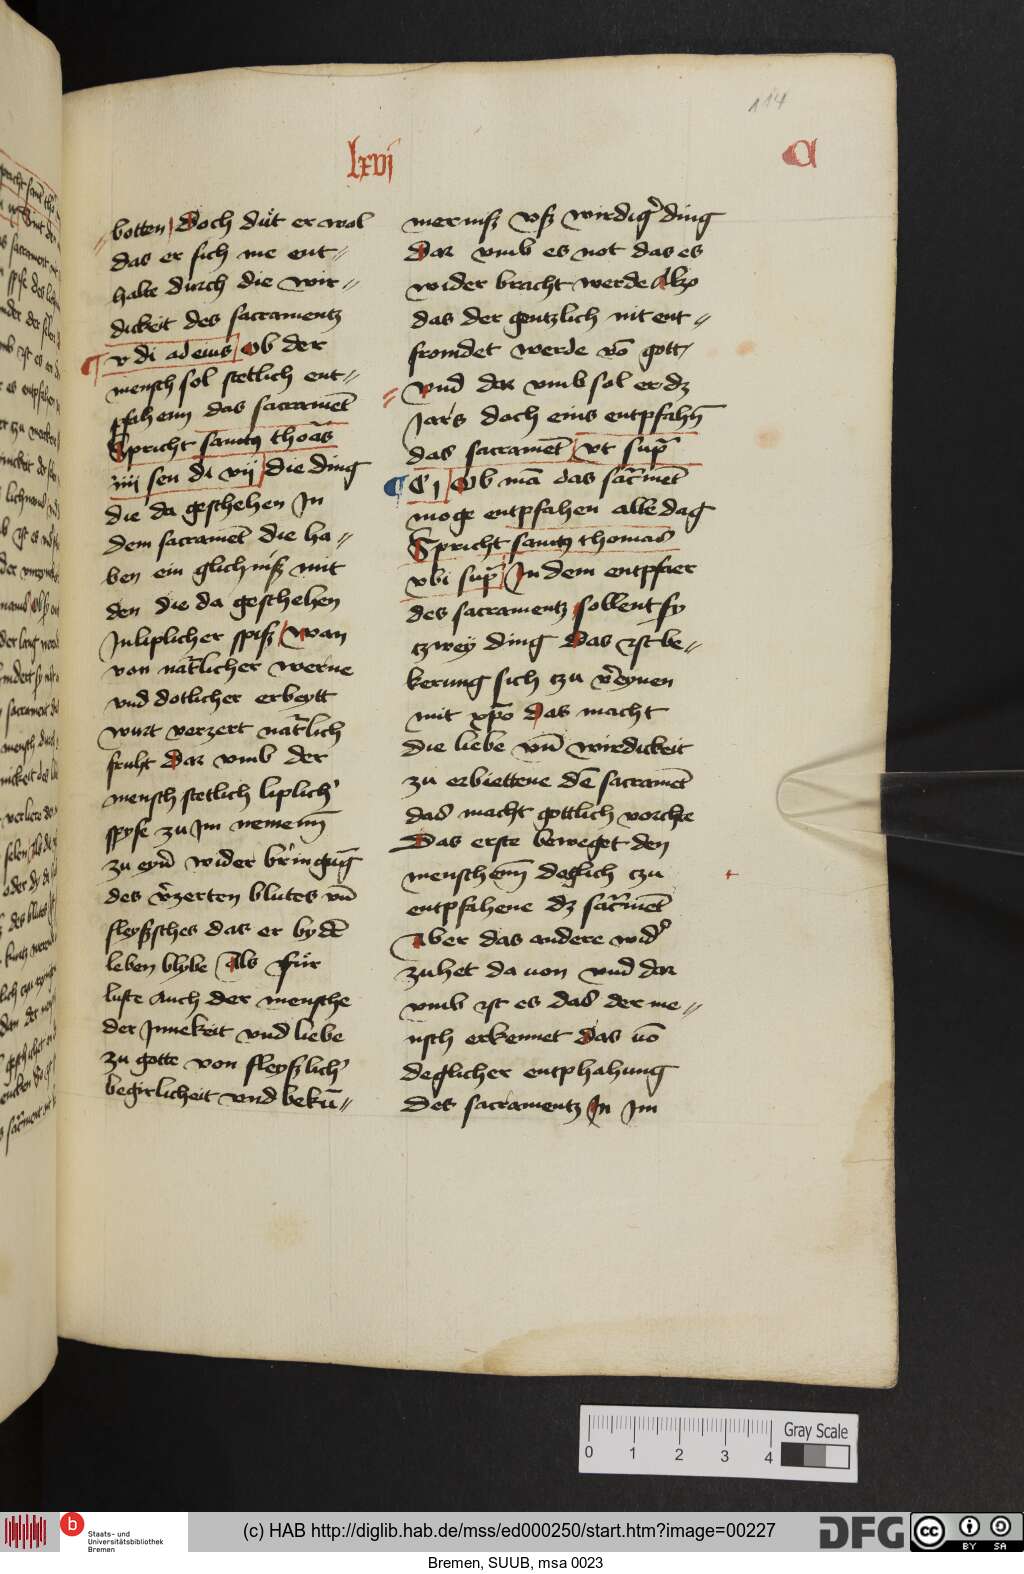 114
lxvj
a
botten Doch düt er wol
das er sich me ent=
halte durch die wir=
dickeit des sacramentz
v di ad eius Ob der
mensch sol stetlich ent=
pfahenn das sacramēt
Spricht sanctus thoās
iiij sen di vij die ding
die da geschehen In
dem sacramēt die ha=
ben ein glichniß mit
den die da geschehen
In liplicher spiß wan
von natlicher werme
vnd dotlicher erbeytt
wurt verzert natlich
fruht Dar vmb der
mensch stetlich liplich
spyse zu Im nemenn
zu eyner wider bringūg
des v̄zerten blutes vn̄
fleyßches das er by dē
leben blybe Als für
luste Auch der mensche
der Innekeit vnd liebe
zu gotte von fleyßlich
begirlicheit vnd bekū=
mernß vß wirdig ding
Dar vmb es not das es
wider bracht werde Also
das der gentzlich nit ent=
fromdet werde vō gott
Vnd dar vmb sol er dz
Jars doch eins entpfahn̄
das sacramēt vt sup̄
C j Ob mā das sacmēt
moge entpfahen alle dag
Spricht sanctus thomas
vbi sup̄ In dem entpfaer
des sacramentz sollent sy
tzwey ding Das ist be=
kerung sich tzu v̄eynen
mit xp̄o Das macht
die liebe vn̄ wirdickeit
zu erbiettene dē sacramēt
das macht gottlich vorchte
Das erste beweget den
menschenn deglich tzu
entpfahene dz sacmēt
Aber das andere wid
zuhet da uon vnd dar
vmb ist es das der me=
nsch erkennet Das uō
deglicher entphahung
Des sacramentz In im
0 1 2 3 4
Gray Scale
b
Staats- und
Universitätsbibliothek
Bremen
(c) HAB http://diglib.hab.de/mss/ed000250/start.htm?image=00227
DFG
cc
BY SA
Bremen, SUUB, msa 0023